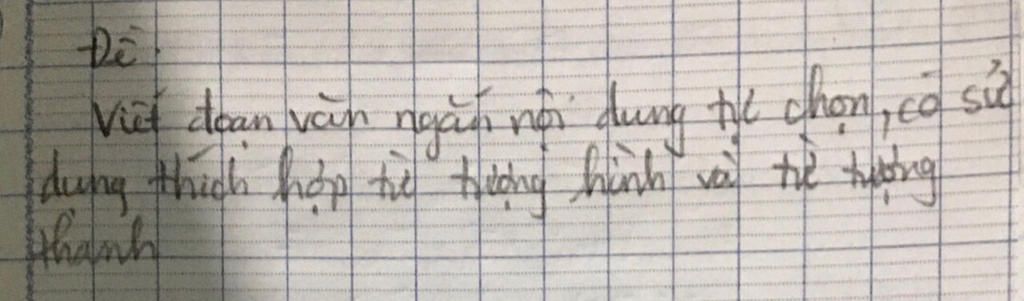 Đề:
Viết đoạn văn ngắn nội dung tự chọn, có sử
dụng thích hợp từ tượng hình và từ tượng
thanh